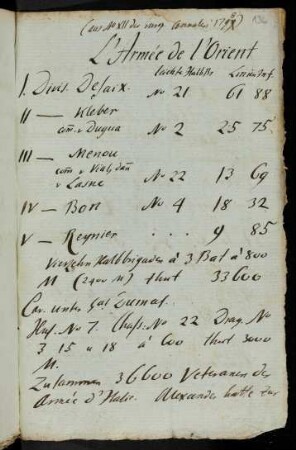 (aus No XII der europ. Annalen 1798)
L'Armée de l'Orient
leichte Halbbr Linieninf.
I. Divis. Desaix. No 21 61 88
II — Kleber
und Dugua No 2 25 75
III — Menou
v Lasne No 22 13 69
IV — Bon No 4 18 32
V — Reynier . . . 9 85
Vierzehn Halbbrigaden à 3 Bat à 800
M (2400 M) thut 33600
Cav. unter Gal Dumas.
Hus. No 7. Chass. No 22 Drag. No
3 15 u 18 à 600 thut 3000
M.
Zusammen 36600 Veteranen der
Armée d'Italie. Alexander hatte zur